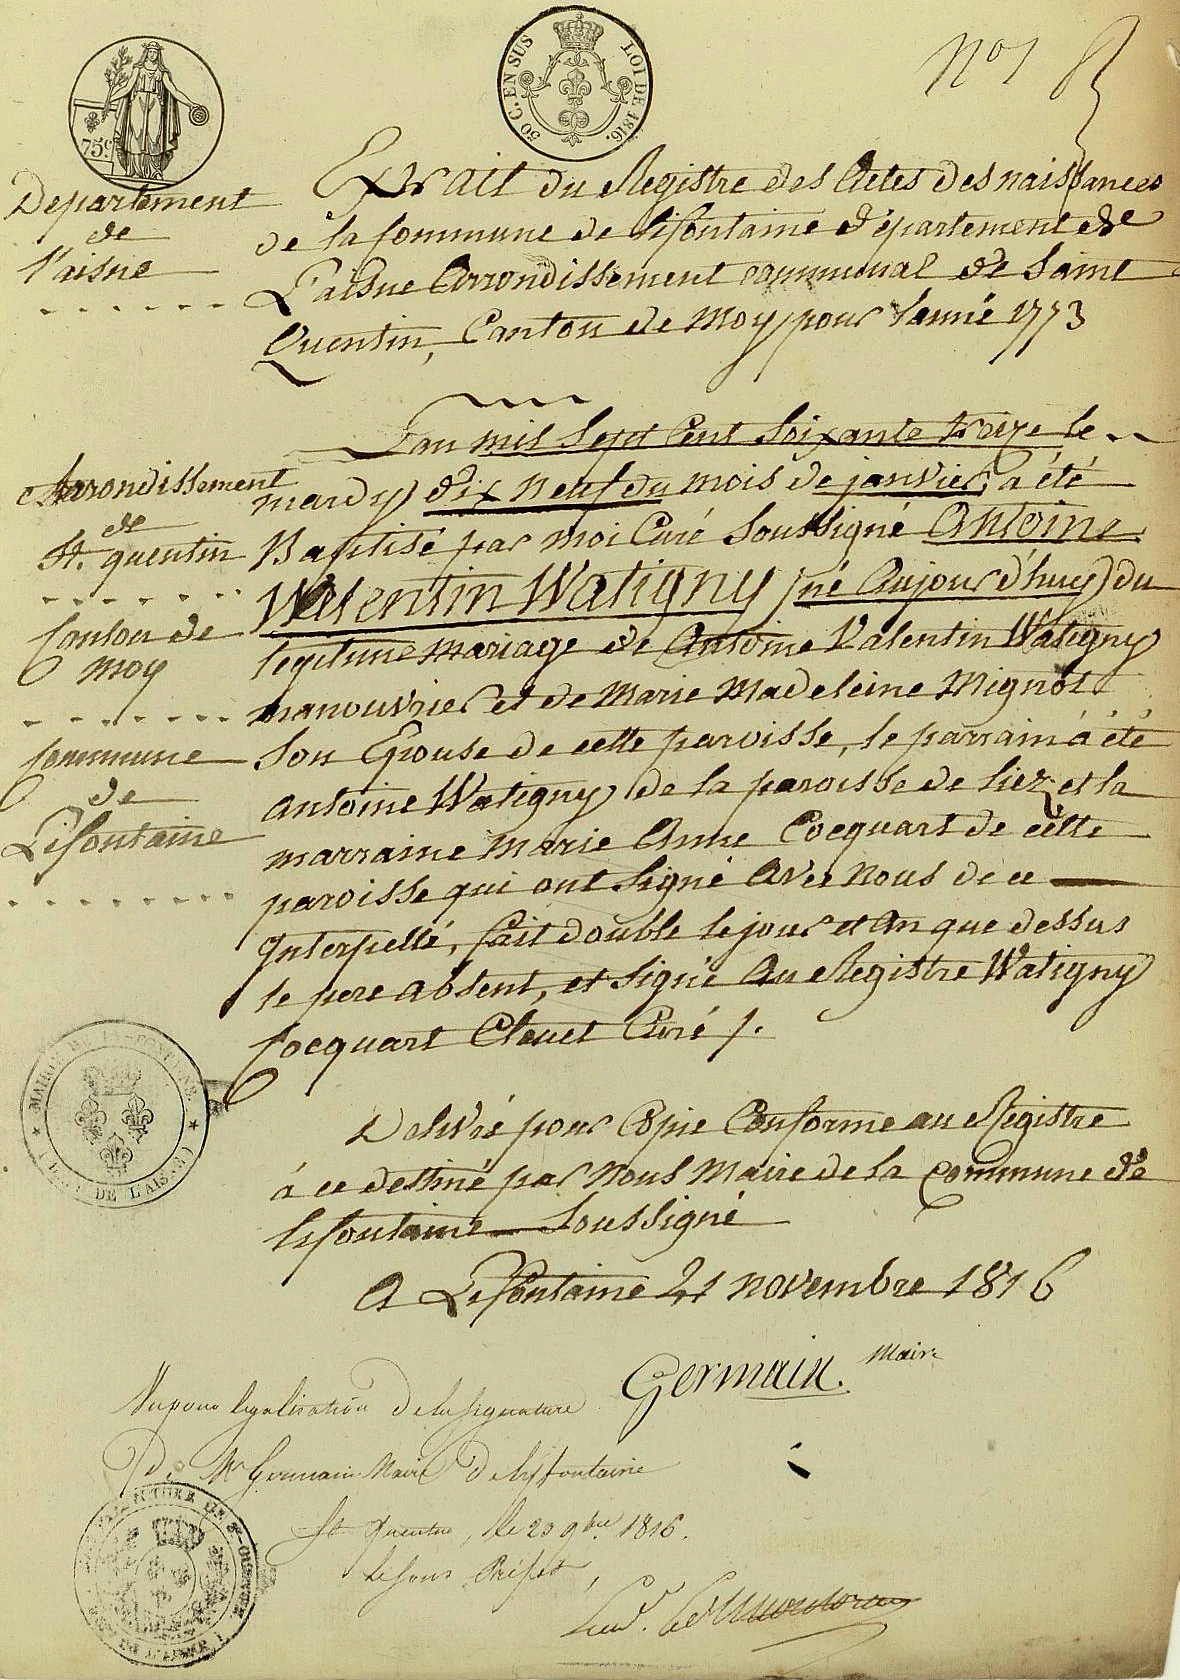 75c
50 C. EN SUS LOI DE 1816.
No 1
Departement
de
l'aisne
Extrait du Registre des Actes des naissances
de la Commune de Lifontaine Département de
L'aisne Arrondissement communal de Saint
Quentin, Canton de Moy pour Lanné 1773
Arrondissement
de
St. quentin
Canton de
Moy
Commune
de
Lifontaine
L'an mil Sept Cent Soixante treize le
mardy dix neuf du mois de janvier, a été
Baptisé par moi Curé Soussigné Antoine
Valentin Watigny né Aujourd'huy du
legitime mariage de Antoine Valentin Watigny
manouvrier et de Marie Madeleine Mignot
Son Epouse de cette paroisse, le parrain á été
antoine Watigny de la paroisse de liez et la
marraine Marie Anne Cocquart de cette
paroisse qui ont Signé Avec Nous de ce
Interpellé, fait double le jour et An que dessus
le pere absent, et Signé Au Registre Watigny
Cocquart Clouet Curé
Delivré pour Copie Conforme au Registre
á ce destiné par Nous Maire de la Commune de
lifontaine Soussigné
A Lifontaine 21 novembre 1816
Germain. Maire
MAIRIE DE DE L'AISNE
Vu pour legalisation De la signature
De Mr Germain Maire De Lifontaine
St quentin, le 29 9bre 1816.
Le Sous Préfet,